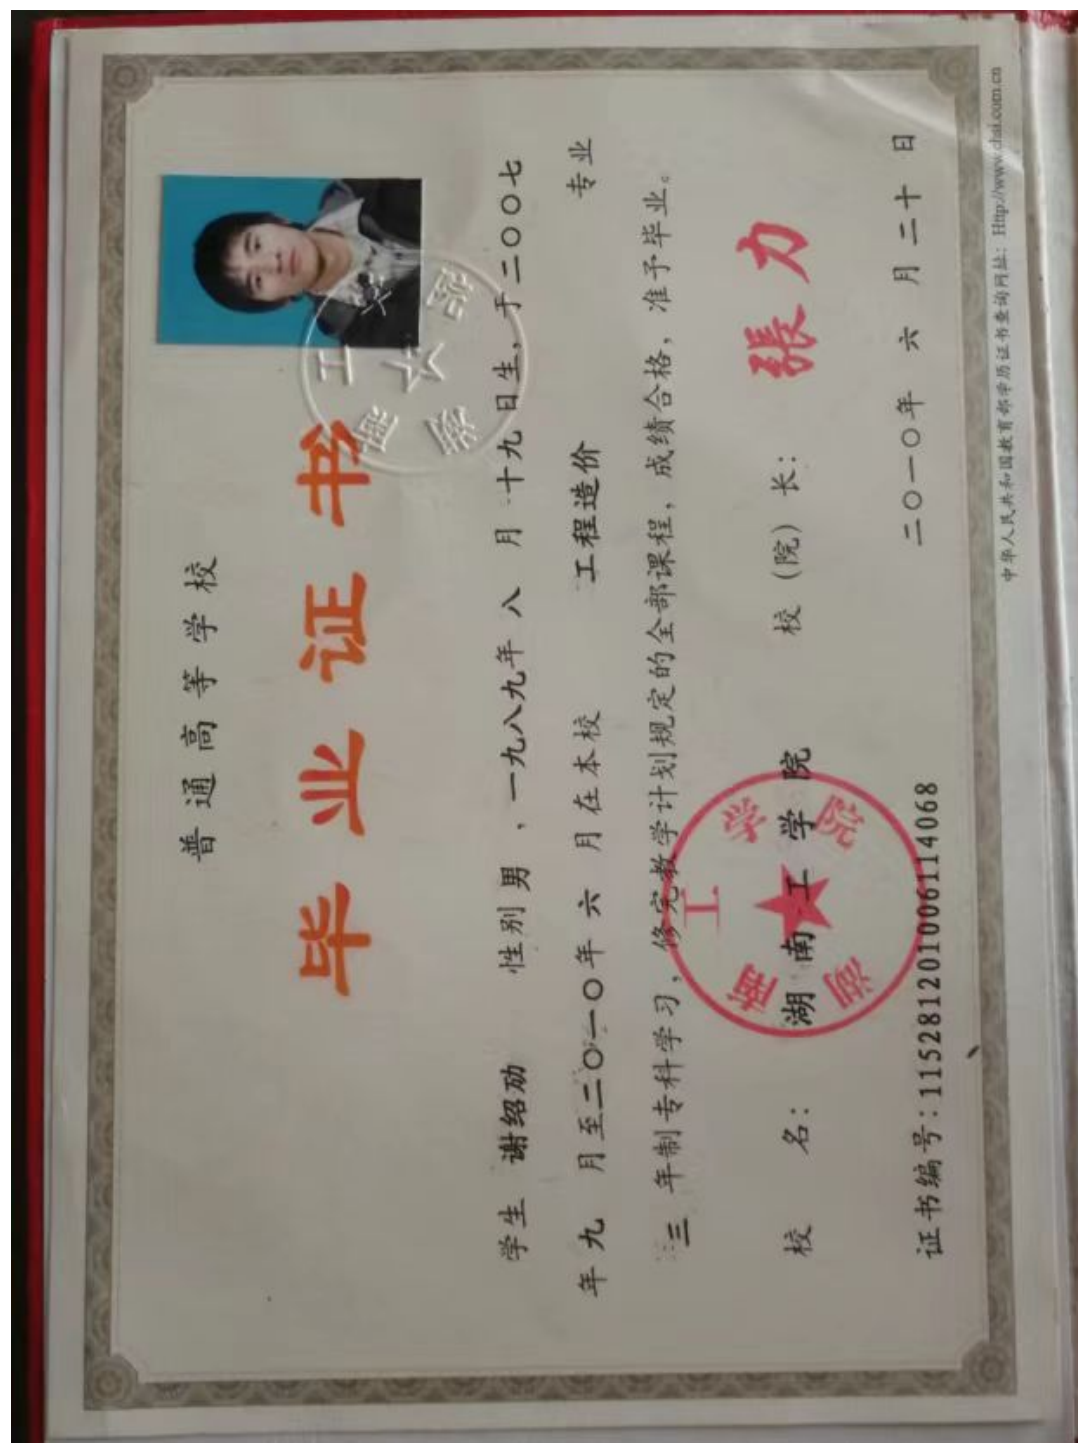 普通高等学校
毕业证书
学生 谢绍劢 性别 男，一九八九年 八 月 十九 日生，于二〇〇七
年 九 月至二〇一〇年 六 月在本校 工程造价 专业
三 年制专科学习，修完教学计划规定的全部课程，成绩合格，准予毕业。
校 名： 湖南工学院 校（院）长： 張力
证书编号：115281201006114068 二〇一〇年 六 月 二十 日
中华人民共和国教育部学历证书查询网址：Http://www.chsi.com.cn
湖南工学院
湖南工学院